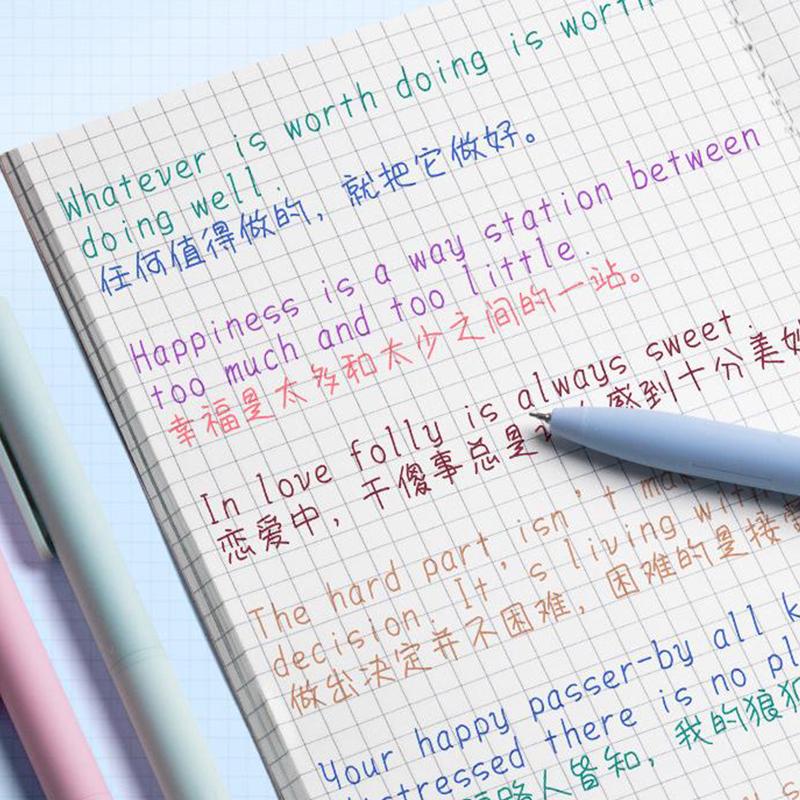 Whatever is worth doing is worth
doing well.
任何值得做的，就把它做好。
Happiness is a way station between
too much and too little.
幸福是太多和太少之间的一站。
In love folly is always sweet.
恋爱中，干傻事总是 感到十分美妙
The hard part isn't
decision. It's living with
做出决定并不困难，困难的是接
Your happy passer-by all
distressed there is no
路人皆知，我的狼狈